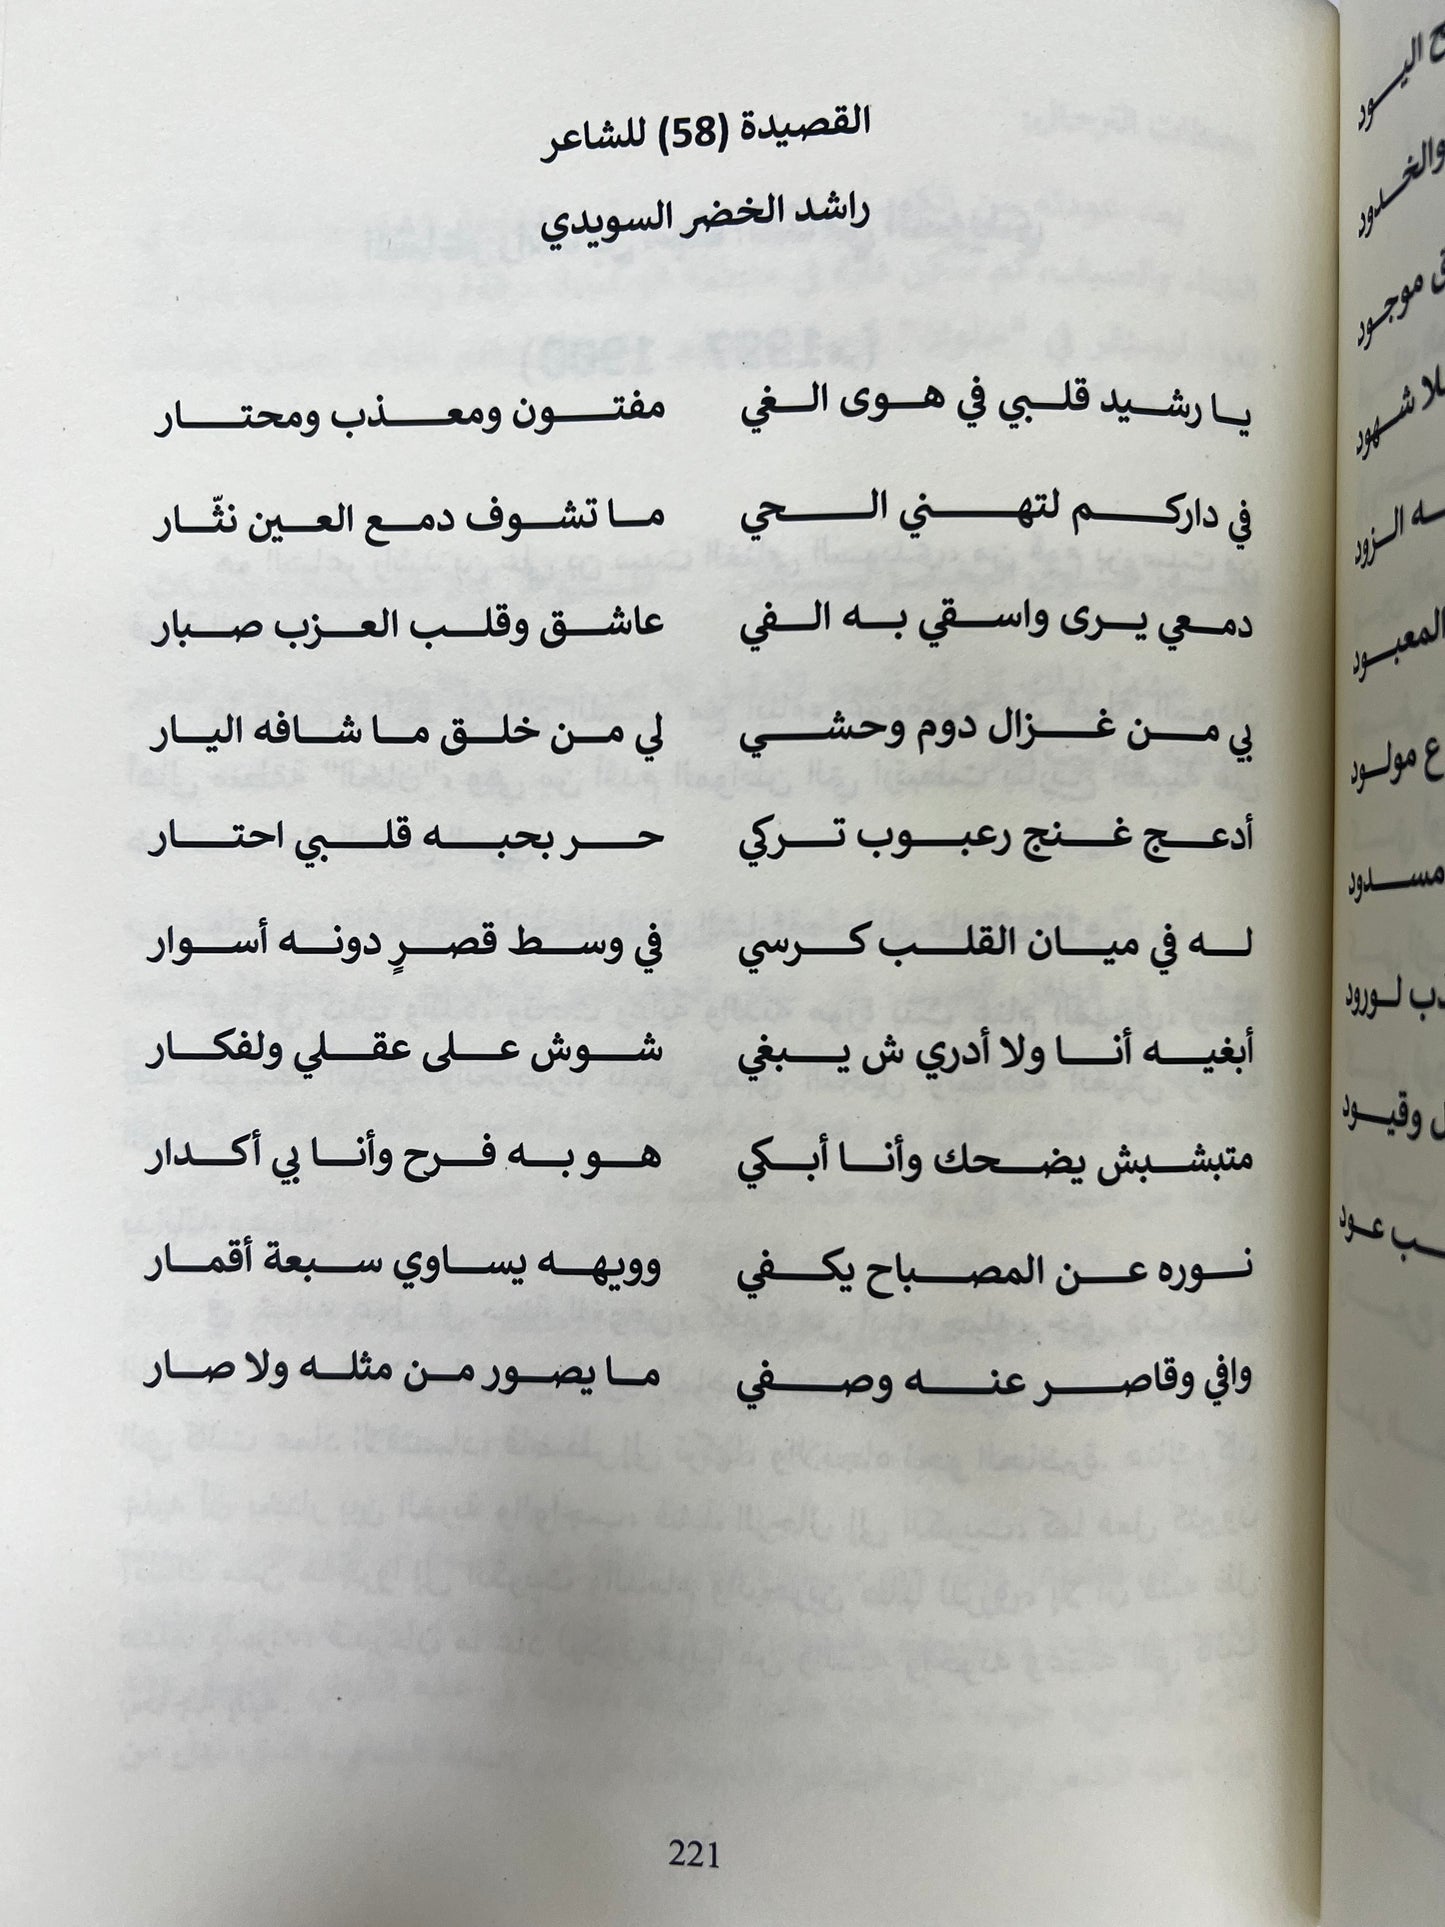 القصيدة (58) للشاعر
راشد الخضر السويدي
يا رشيد قلبي في هوى الغي مفتون ومعذب ومحتار
في داركم لتهني الحي ما تشوف دمع العين نثّار
دمعي يرى واسقي به الفي عاشق وقلب العزب صبار
بي من غزال دوم وحشي لي من خلق ما شافه اليار
أدعج غنج رعبوب تركي حر بحبه قلبي احتار
له في ميان القلب كرسي في وسط قصرٍ دونه أسوار
أبغيه أنا ولا أدري ش يبغي شوش على عقلي ولفكار
متبشبش يضحك وأنا أبكي هو به فرح وأنا بي أكدار
نوره عن المصباح يكفي وويهه يساوي سبعة أقمار
وافي وقاصر عنه وصفي ما يصور من مثله ولا صار
221
اليود
والخدود
موجود
شهود
الزود
المعبود
مولود
مسدود
لورود
وقيود
عود